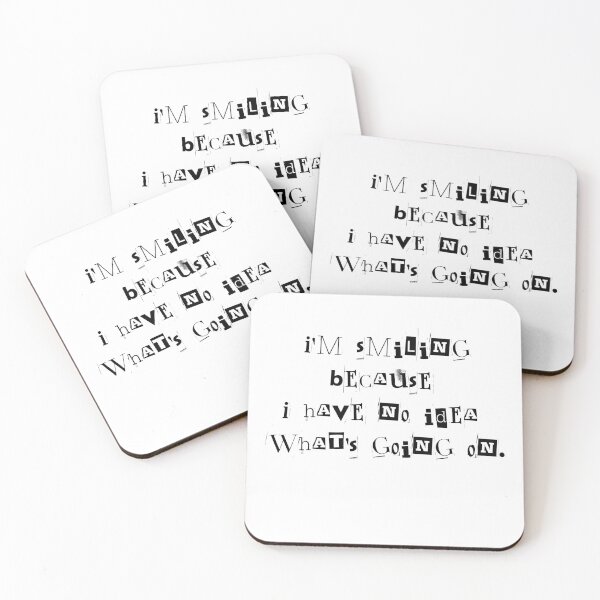 i'M sMiLiNG
bEcAUSE
i hAVE NO idEA
i'M sMiLiNG
bEcAUSE
i hAVE NO idEA
WhAT'S GoiNG oN.
i'M sMiLiNG
bEcAUSE
i hAVE NO idEA
WhAT'S GoiNG
i'M sMiLiNG
bEcAUSE
i hAVE NO idEA
WhAT'S GoiNG oN.